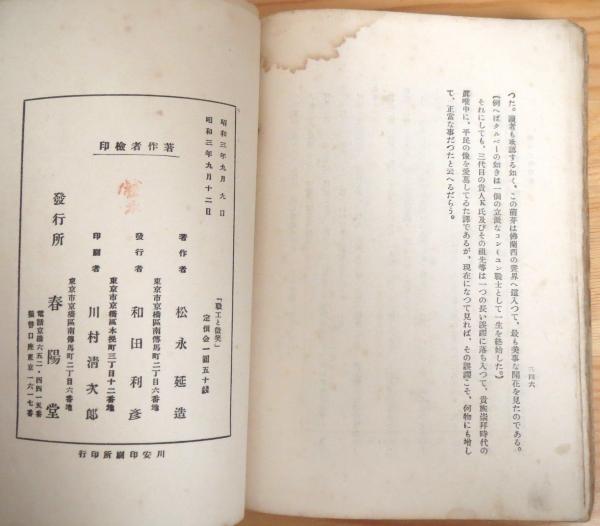 つた。讀者も承認する如く、この萠芽は佛蘭西の世界へ這入つて、最も美事な開花を見たのである。
(例へばタルペーの如きは一個の立派なコンミュン戰士として一生を終始した。)
それにしても、三代目の貴人K氏及びその祖先等は一つの長い誤謬に落ち入つて、貴族崇拜時代の
眞唯中に、平民の像を愛慕してゐた譯であるが、現在になつて見れば、その誤謬こそ、何物にも增し
て、正當な事だつたと云へるだらう。
三四六
昭和三年九月九日
昭和三年九月十二日
著作者檢印
『職工と微笑』
定價金一圓五十錢
著作者 松永延造
東京市京橋區南傳馬町二丁目六番地
發行者 和田利彥
東京市京橋區木挽町三丁目十二番地
印刷者 川村清次郎
東京市京橋區南傳馬町二丁目六番地
發行所 春陽堂
電話京橋六五二・四四一五番
振替口座東京一六一七番
川安印刷所印行